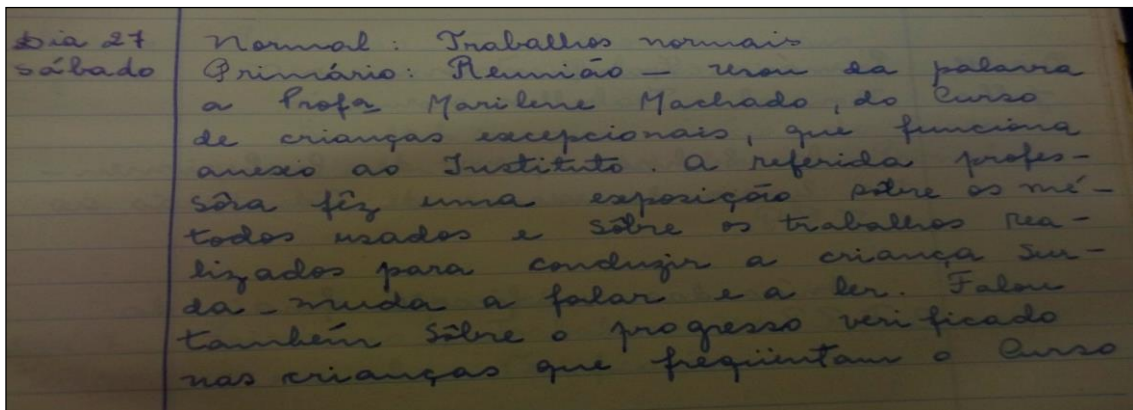 Dia 27 Normal: Trabalhos normais
sábado Primário: Reunião — usou da palavra
a Profa Marilene Machado, do Curso
de crianças excepcionais, que funciona
anexo ao Instituto. A referida profes-
sôra fêz uma exposição sôbre os mé-
todos usados e sôbre os trabalhos rea-
lizados para conduzir a criança sur-
da-muda a falar e a ler. Falou
também sôbre o progresso verificado
nas crianças que freqüentam o Curso